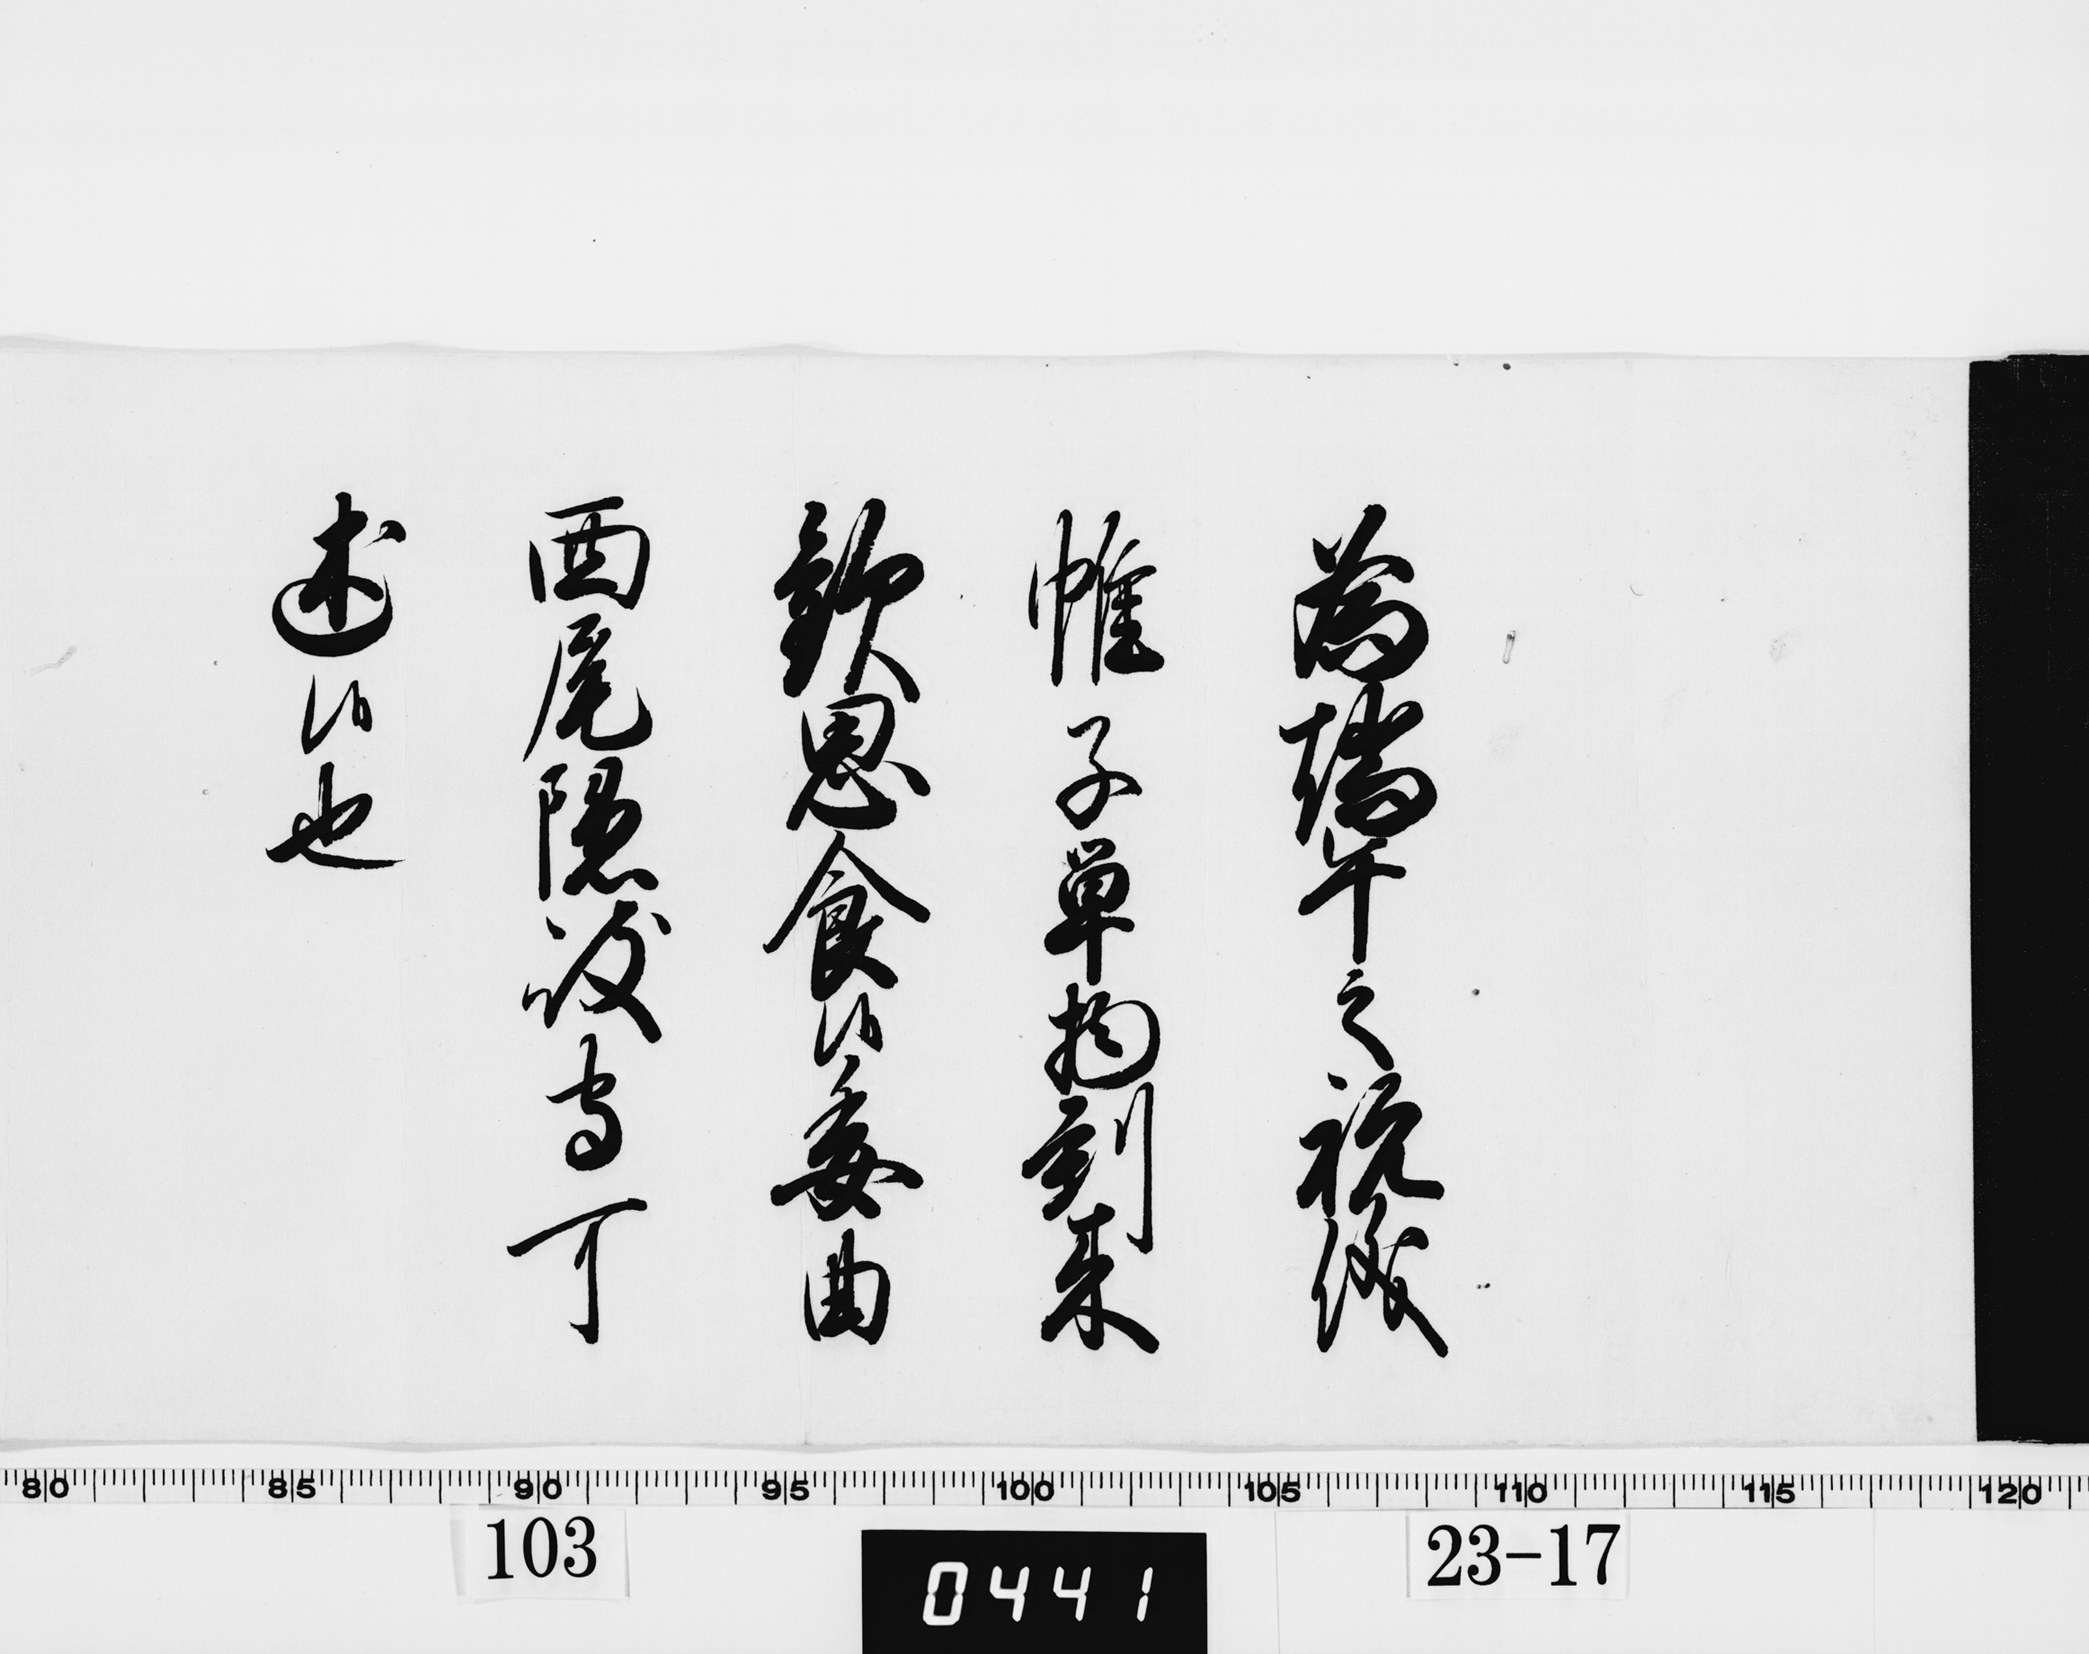 為端午之祝儀
帷子単物到来
歓思食候委曲
西尾隠岐守可
述候也
80 85 90 95 100 105 110 115 120
103
0441
23-17